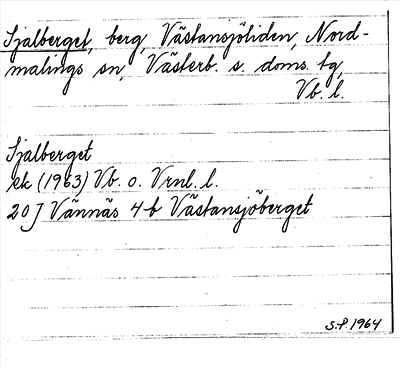 Sjalberget, berg, Västansjöliden, Nord-
malings sn, Västerb. s. doms. tg,
Vb. l.
Sjalberget
ek (1963) Vb. o. Vrnl. l.
20 J Vännäs 4b Västansjöberget
S.P. 1964